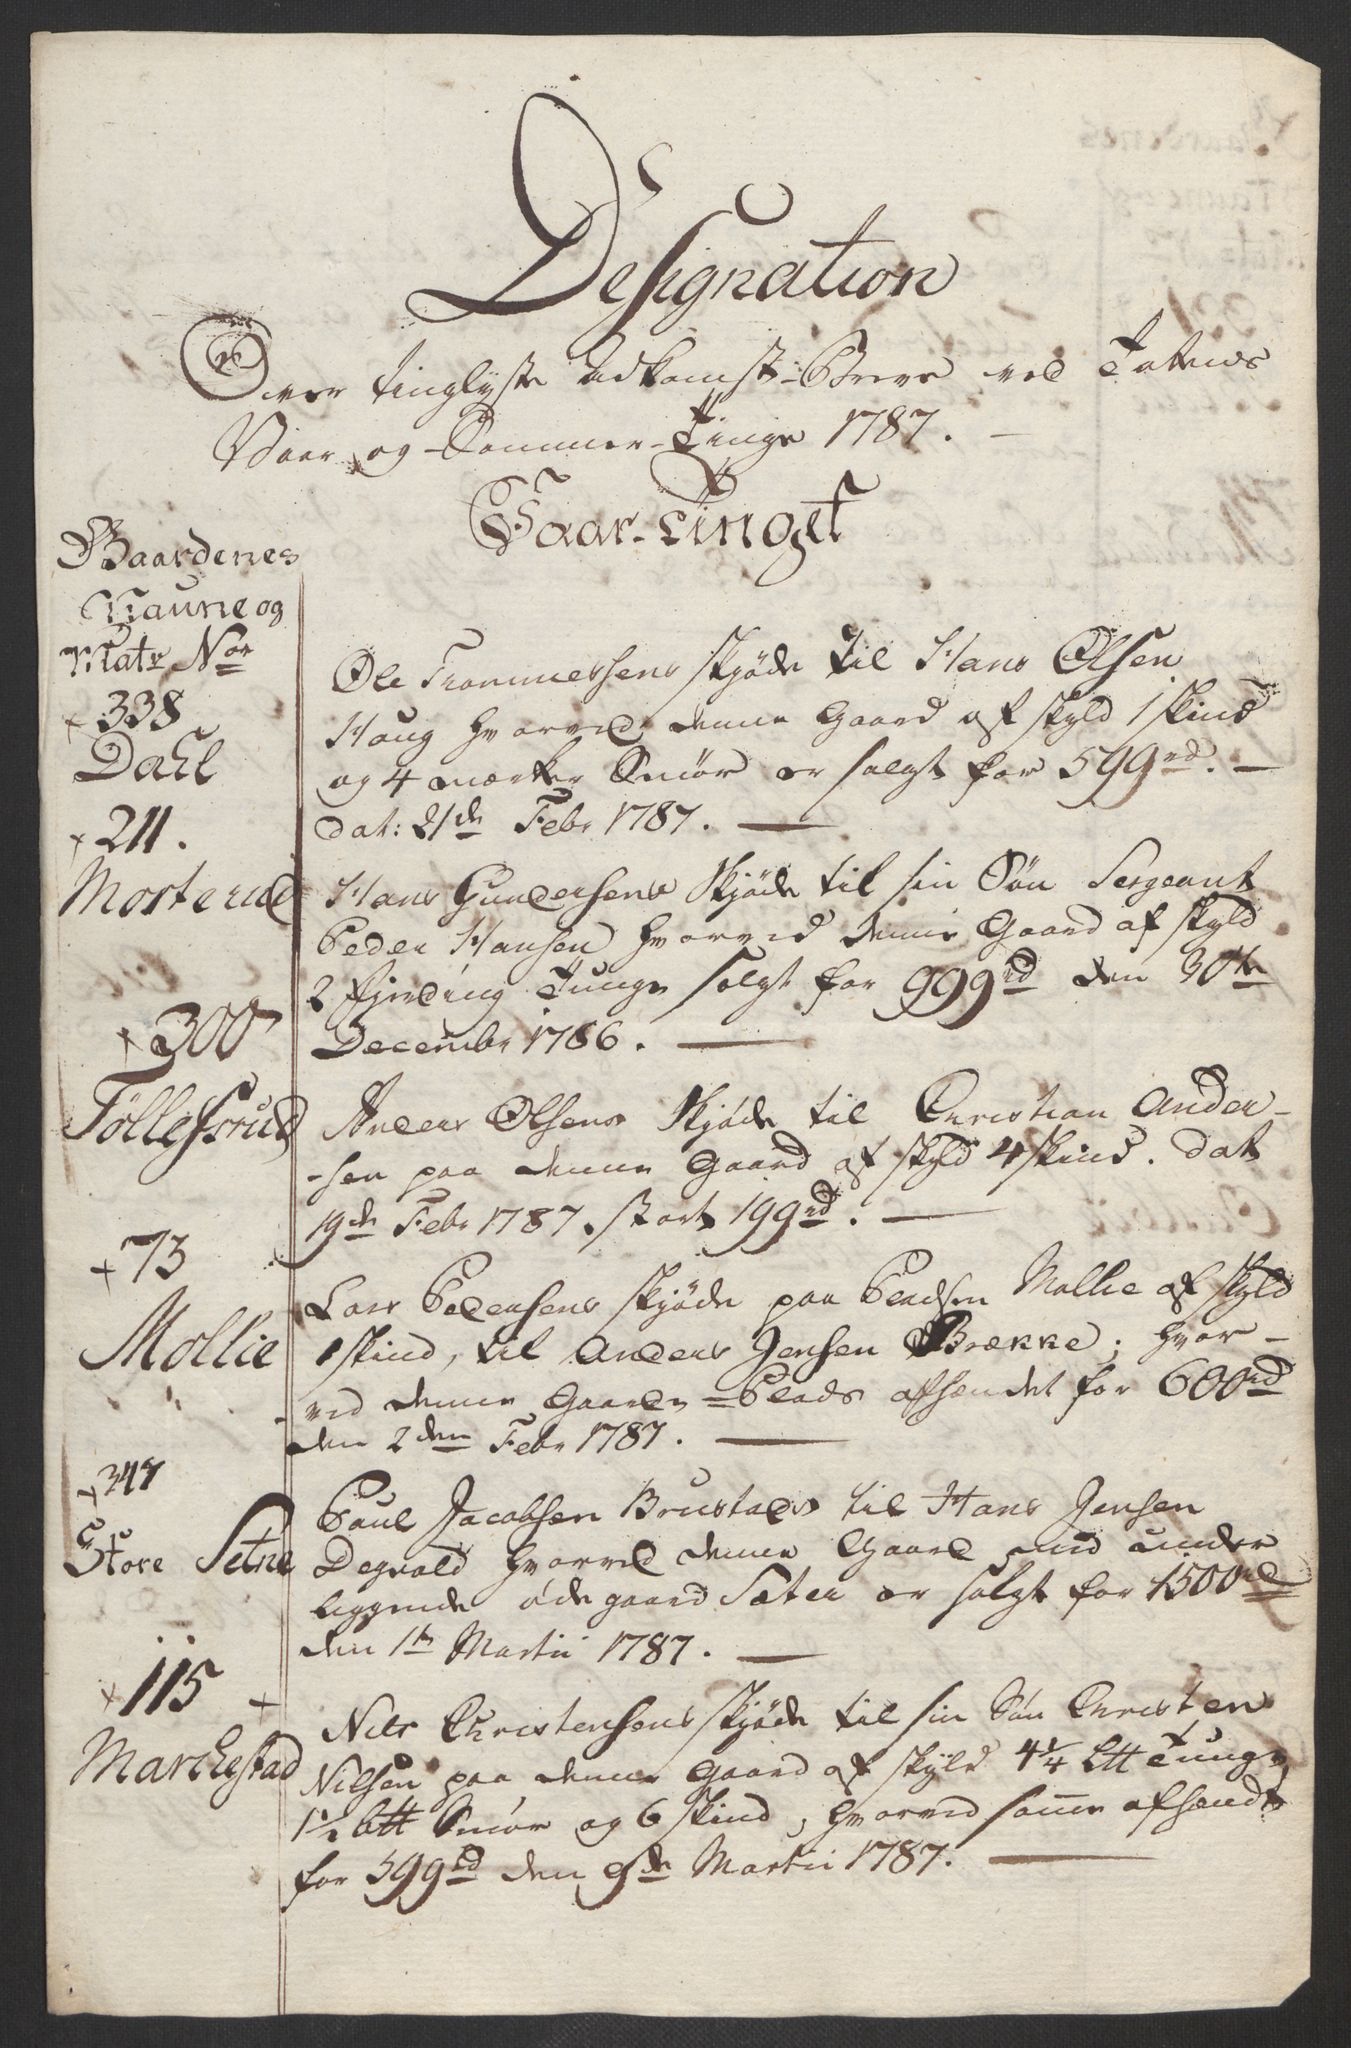 Designation
Over tinglyste Adkomst-Breve ved Totens
Vaar og Sommer-Tinge 1787.
Vaar-Tinget
Gaardenes
Naune og
Matr Nor
+338
Dahl
Ole Frommessens skjøde til Hans Olsen
Haug hvorved denne Gaard af skyld 1 skind
og 4 mærker Smør er solgt for 599 rd. —
dat: 21de Febr 1787. —
+211.
Morterud
Hans Gundersens skjøde til sin Søn Sergeant
Peder Hansen hvorved denne Gaard af skyld
2 fjerding Tunge solgt for 999 rd den 30te
Decembr 1786. —
+300
Töllefsrud
Anders Olsens skjøde til Christian Ander-
-sen paa denne Gaard af skyld 4 skind. dat
19de Febr 1787. stort 199 rd. —
+73
Mollie
Lars Pedersens skjøde paa Pladsen Mollie af skyld
1 skind, til Anders Jensen Brække; hvor-
ved denne Gaard =Plads afhændet for 600 rd
den 2den Febr 1787. —
+347
Store Setne
Poul Jacobsen Brustads til Hans Jensen
Degvold hvorved denne Gaard med under
liggende øde gaard Sæter er solgt for 1500 rd
den 1te Martii 1787. —
+115 +
Marchestad
Nils Christensens skjøde til sin Søn Christen
Nilsen paa denne Gaard af skyld 4 1/4 Ltt Tunge
1 1/2 btt Smør og 6 skind, hvorved samme afhændt
for 599 rd den 9de Martii 1787. —